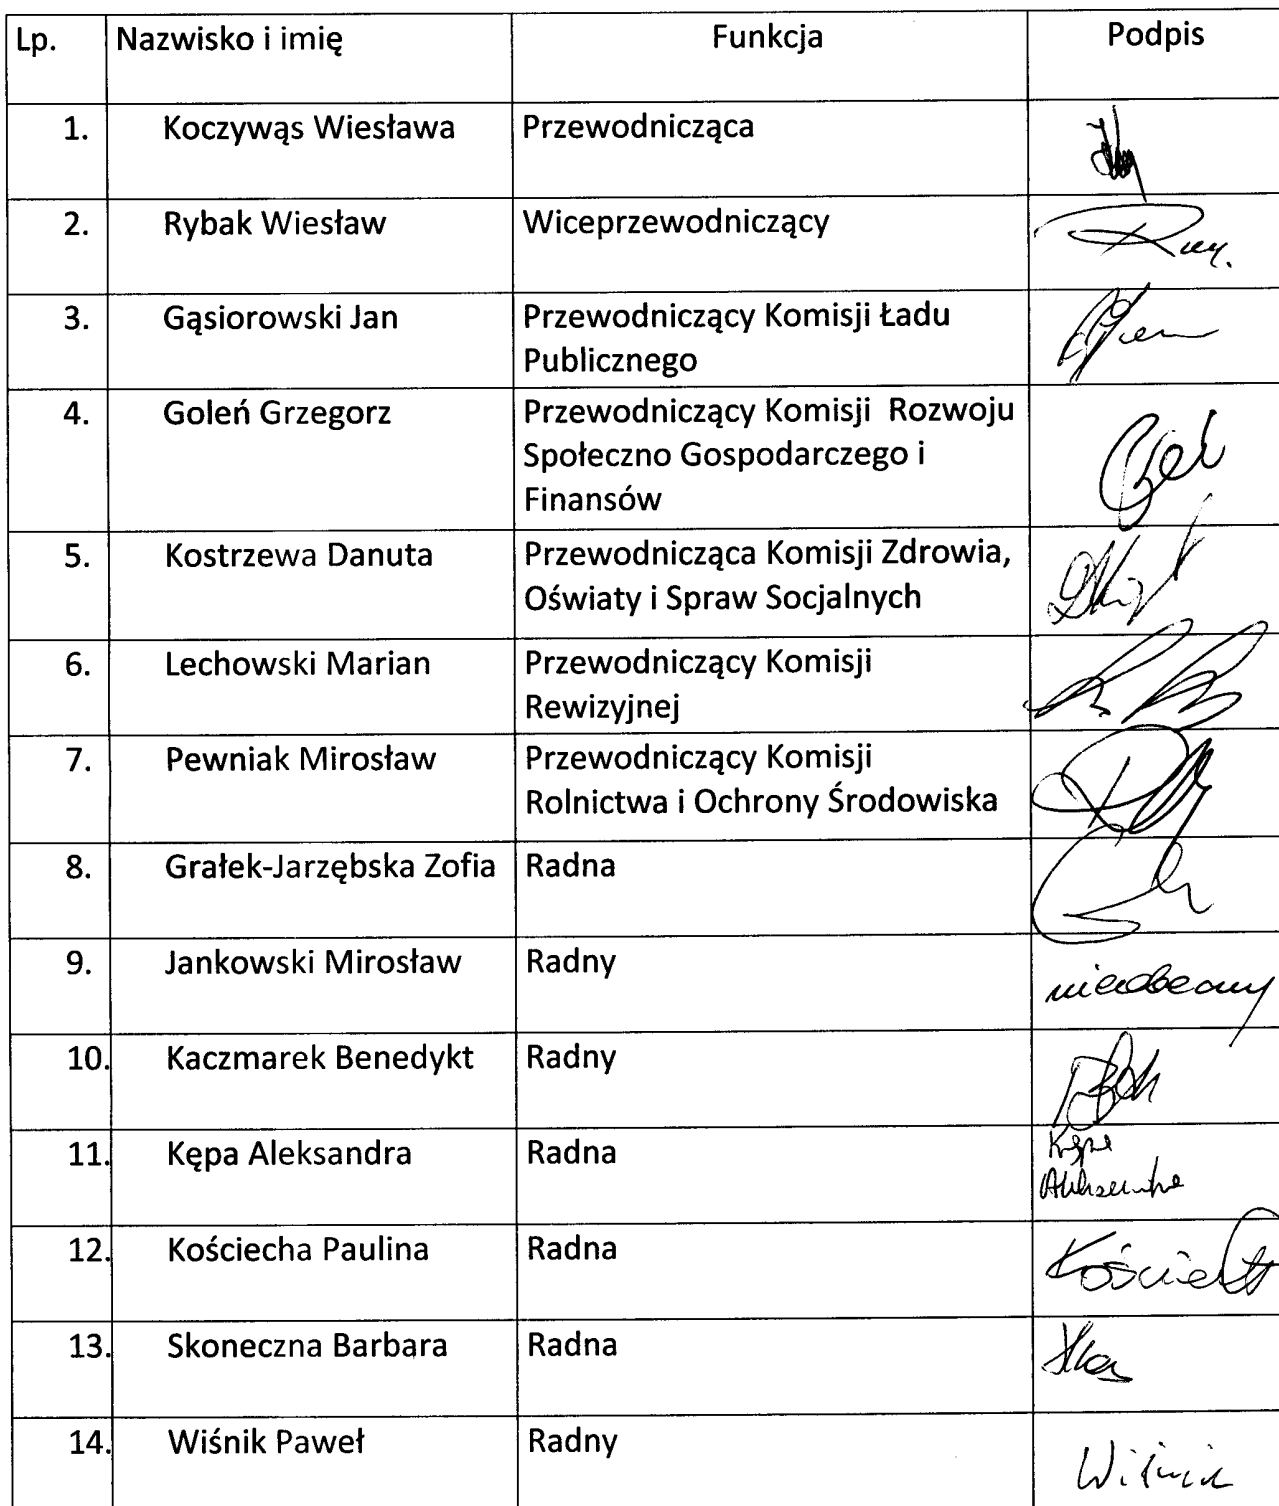 Lp. Nazwisko i imię Funkcja Podpis
1. Koczywąs Wiesława Przewodnicząca
2. Rybak Wiesław Wiceprzewodniczący
3. Gąsiorowski Jan Przewodniczący Komisji Ładu
Publicznego
4. Goleń Grzegorz Przewodniczący Komisji Rozwoju
Społeczno Gospodarczego i
Finansów
5. Kostrzewa Danuta Przewodnicząca Komisji Zdrowia,
Oświaty i Spraw Socjalnych
6. Lechowski Marian Przewodniczący Komisji
Rewizyjnej
7. Pewniak Mirosław Przewodniczący Komisji
Rolnictwa i Ochrony Środowiska
8. Grałek-Jarzębska Zofia Radna
9. Jankowski Mirosław Radny nieobecny
10. Kaczmarek Benedykt Radny
11. Kępa Aleksandra Radna Kępa
Aleksandra
12. Kościecha Paulina Radna
13. Skoneczna Barbara Radna
14. Wiśnik Paweł Radny Wiśnik